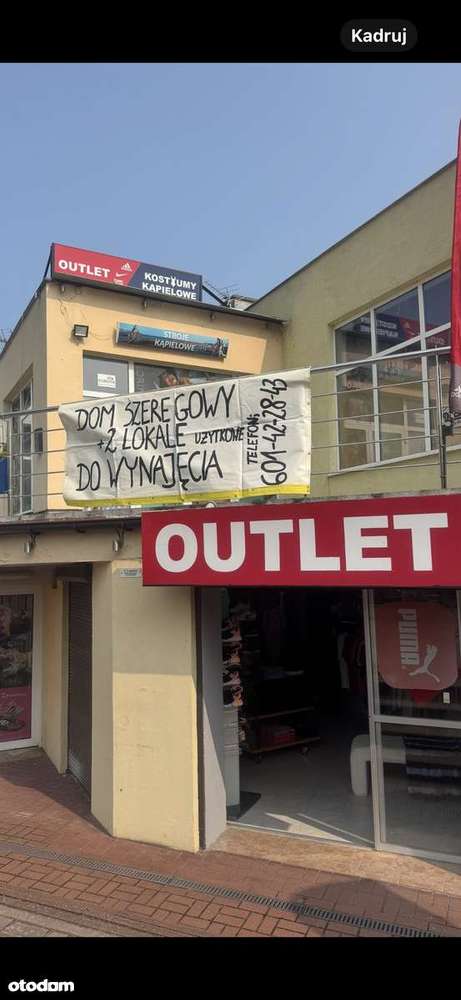 Kadruj
OUTLET
KOSTIUMY
KĄPIELOWE
STROJE
KĄPIELOWE
DOM SZEREGOWY
+2 LOKALE UŻYTKOWE
DO WYNAJĘCIA
TELEFON:
601-42-28-43
OUTLET
PUMA
otodom